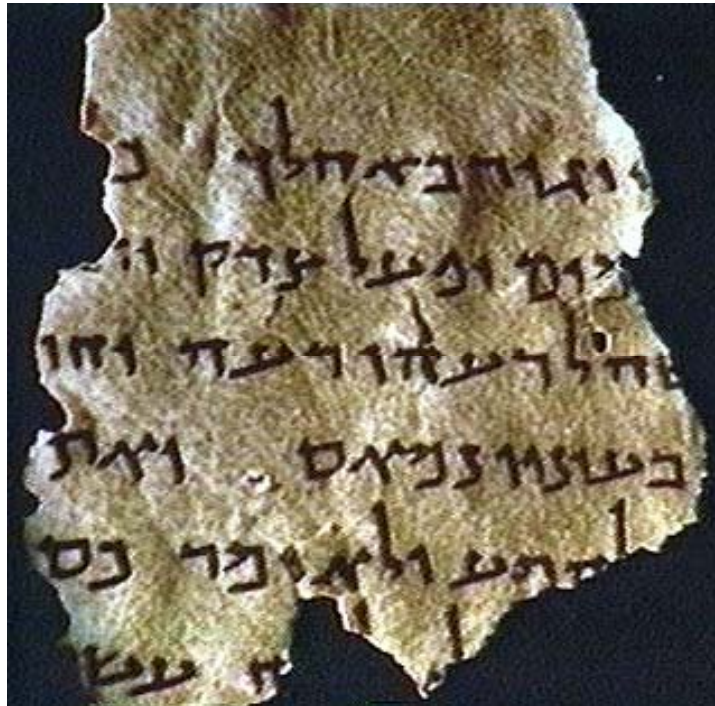 יגור באהלך מ
מים ופעל צדק וד
שה לרעהו רעה וחר
בעיניו נמאס ואת
להרע ולא ימר כס